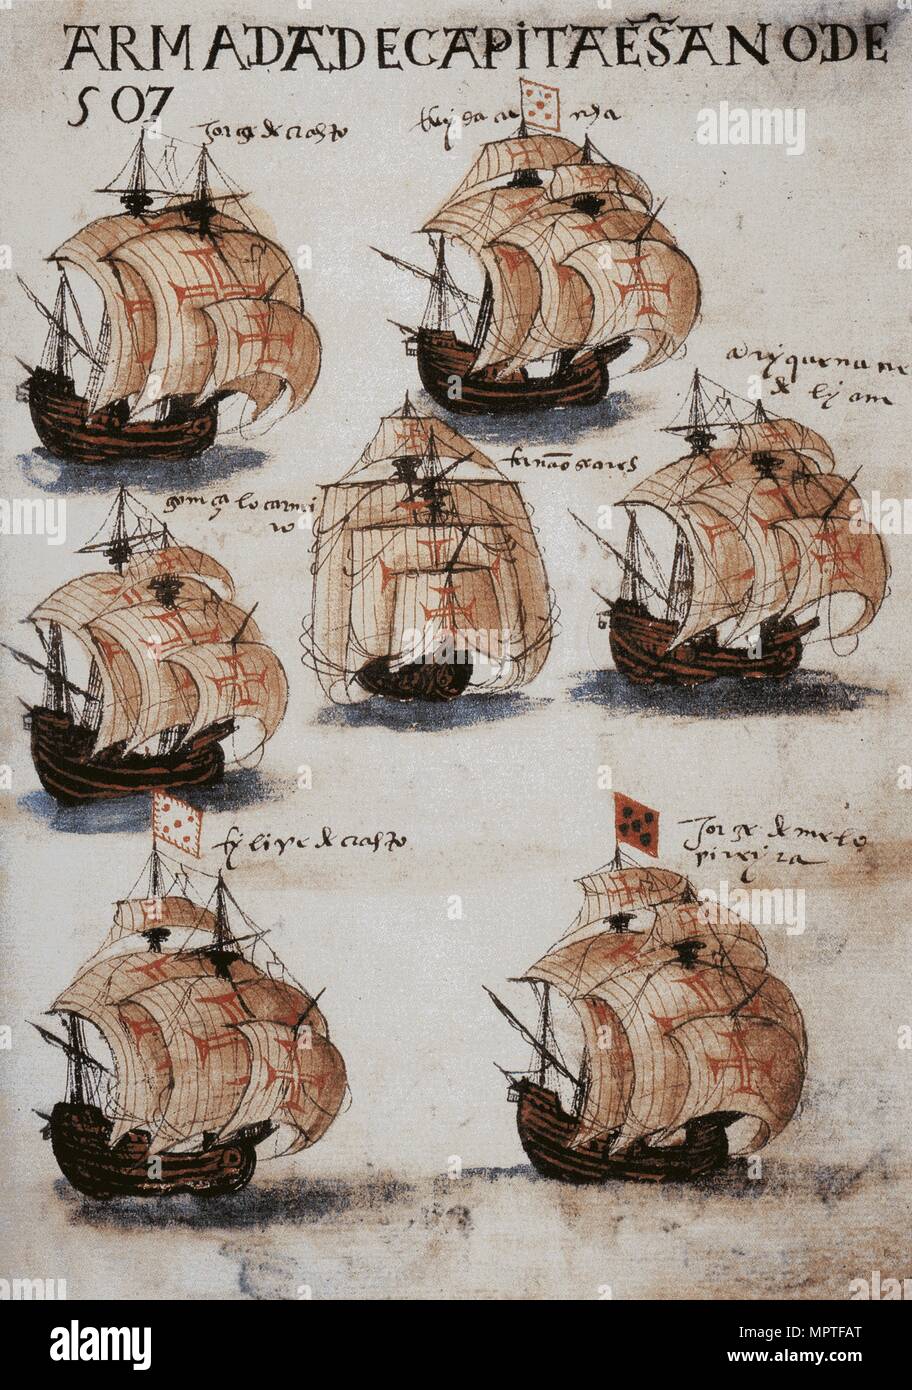 ARMADADECAPITAẼSANODE
507
Jorge de crasto
Ruy da cu nha
anrique nu
de lyam
fernão soares
gomçalo carnei
ro
fylipe de crasto
Jorge de melo
pireyra
alamy
Image ID: MPTFAT
www.alamy.com